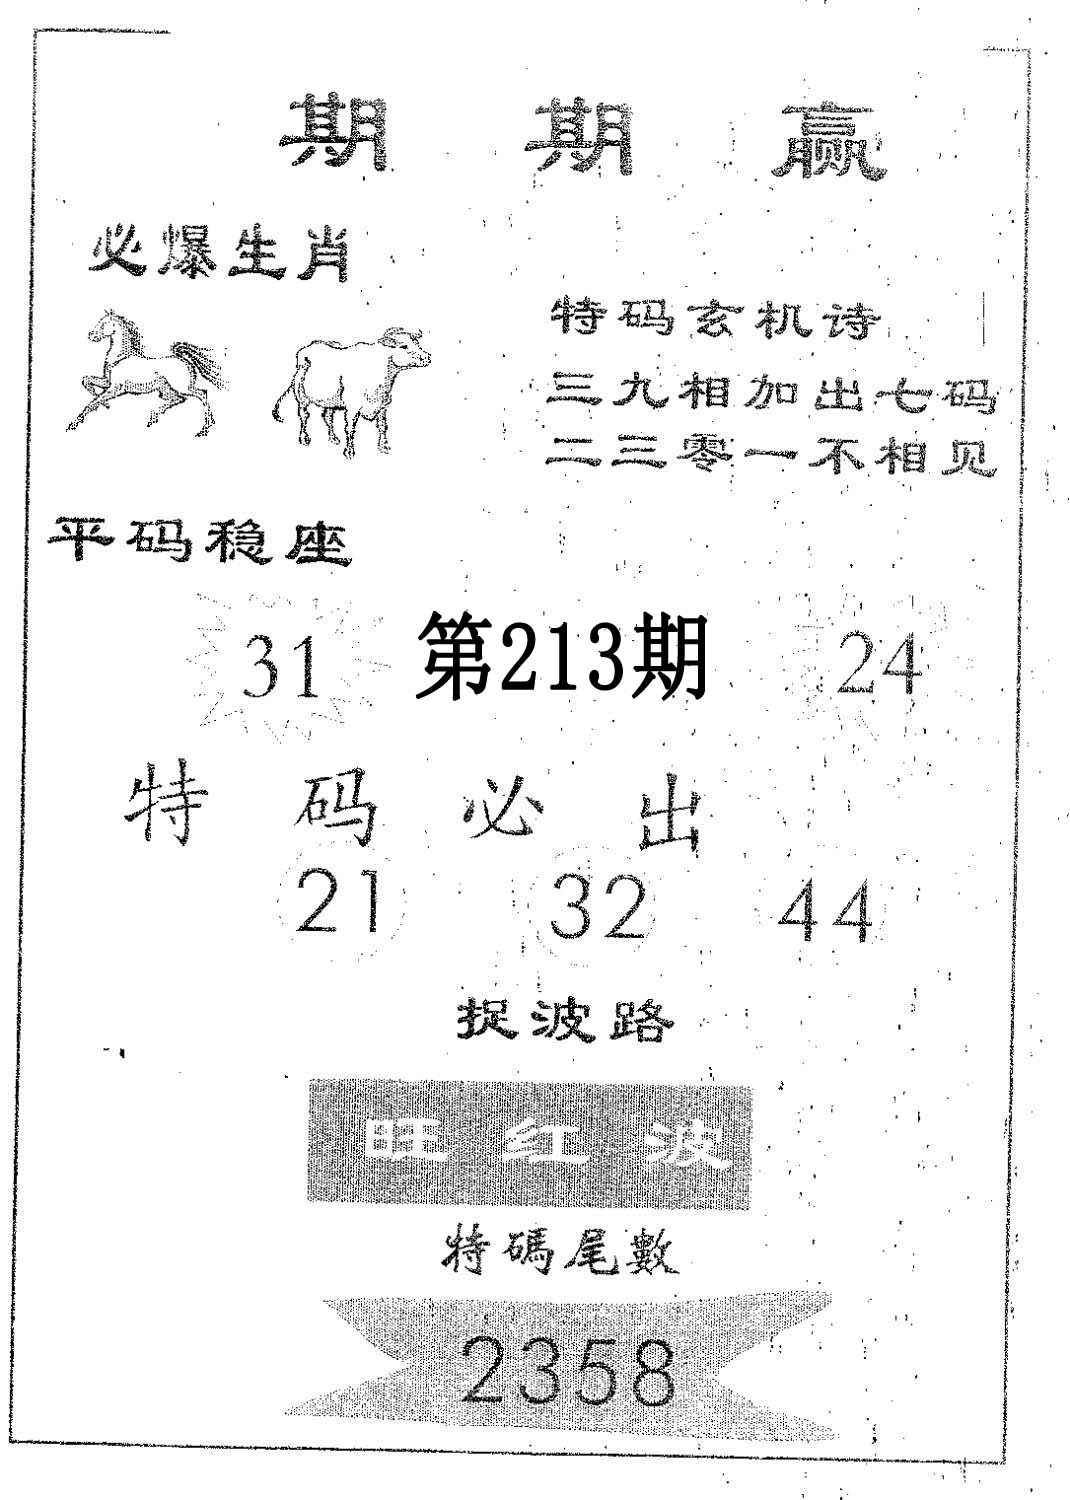 期期赢
必爆生肖
特码玄机诗
三九相加出七码
二三零一不相见
平码稳座
31 第213期 24
特码必出
21 32 44
捉波路
旺红波
特碼尾數
2358